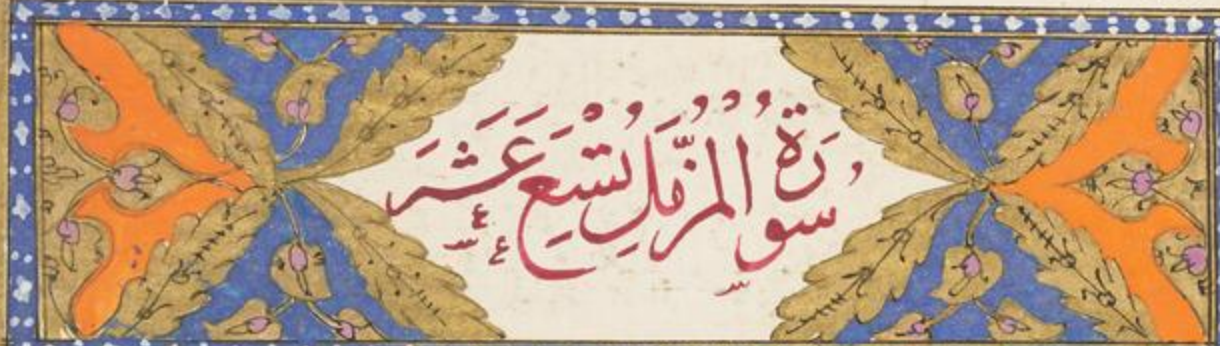 سُورَةُ الْمُزَّمِّلِ تِسْعَ عَشَرَ